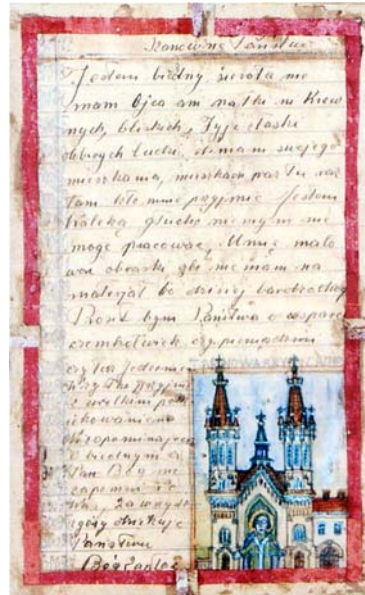 Szanowne Państwo
Jestem biedny sierota nie
mam Ojca ani matki ni Krew
nych, bliskich, Żyje z łaski
dobrych ludzi, nimam swojego
mieszkania, mieszkam raz tu raz
tam kto mnie przyjmie Jestem
kaleką głucho niemym nie
mogę pracować, Umnie malo
wać obrazki ale nie mam na
materjał bo dzisiaj
Prosił bym Państwa o wsparcie
czemkolwiek czy pieniądzmi
czy też jedzeniem
wszystko przyjmę
z wielkim podz
iękowaniem
Niezapominajcie
o biednym a
Pan Bóg nie
zapomni o
Was, za wszyst
z góry dziękuję
Państwu